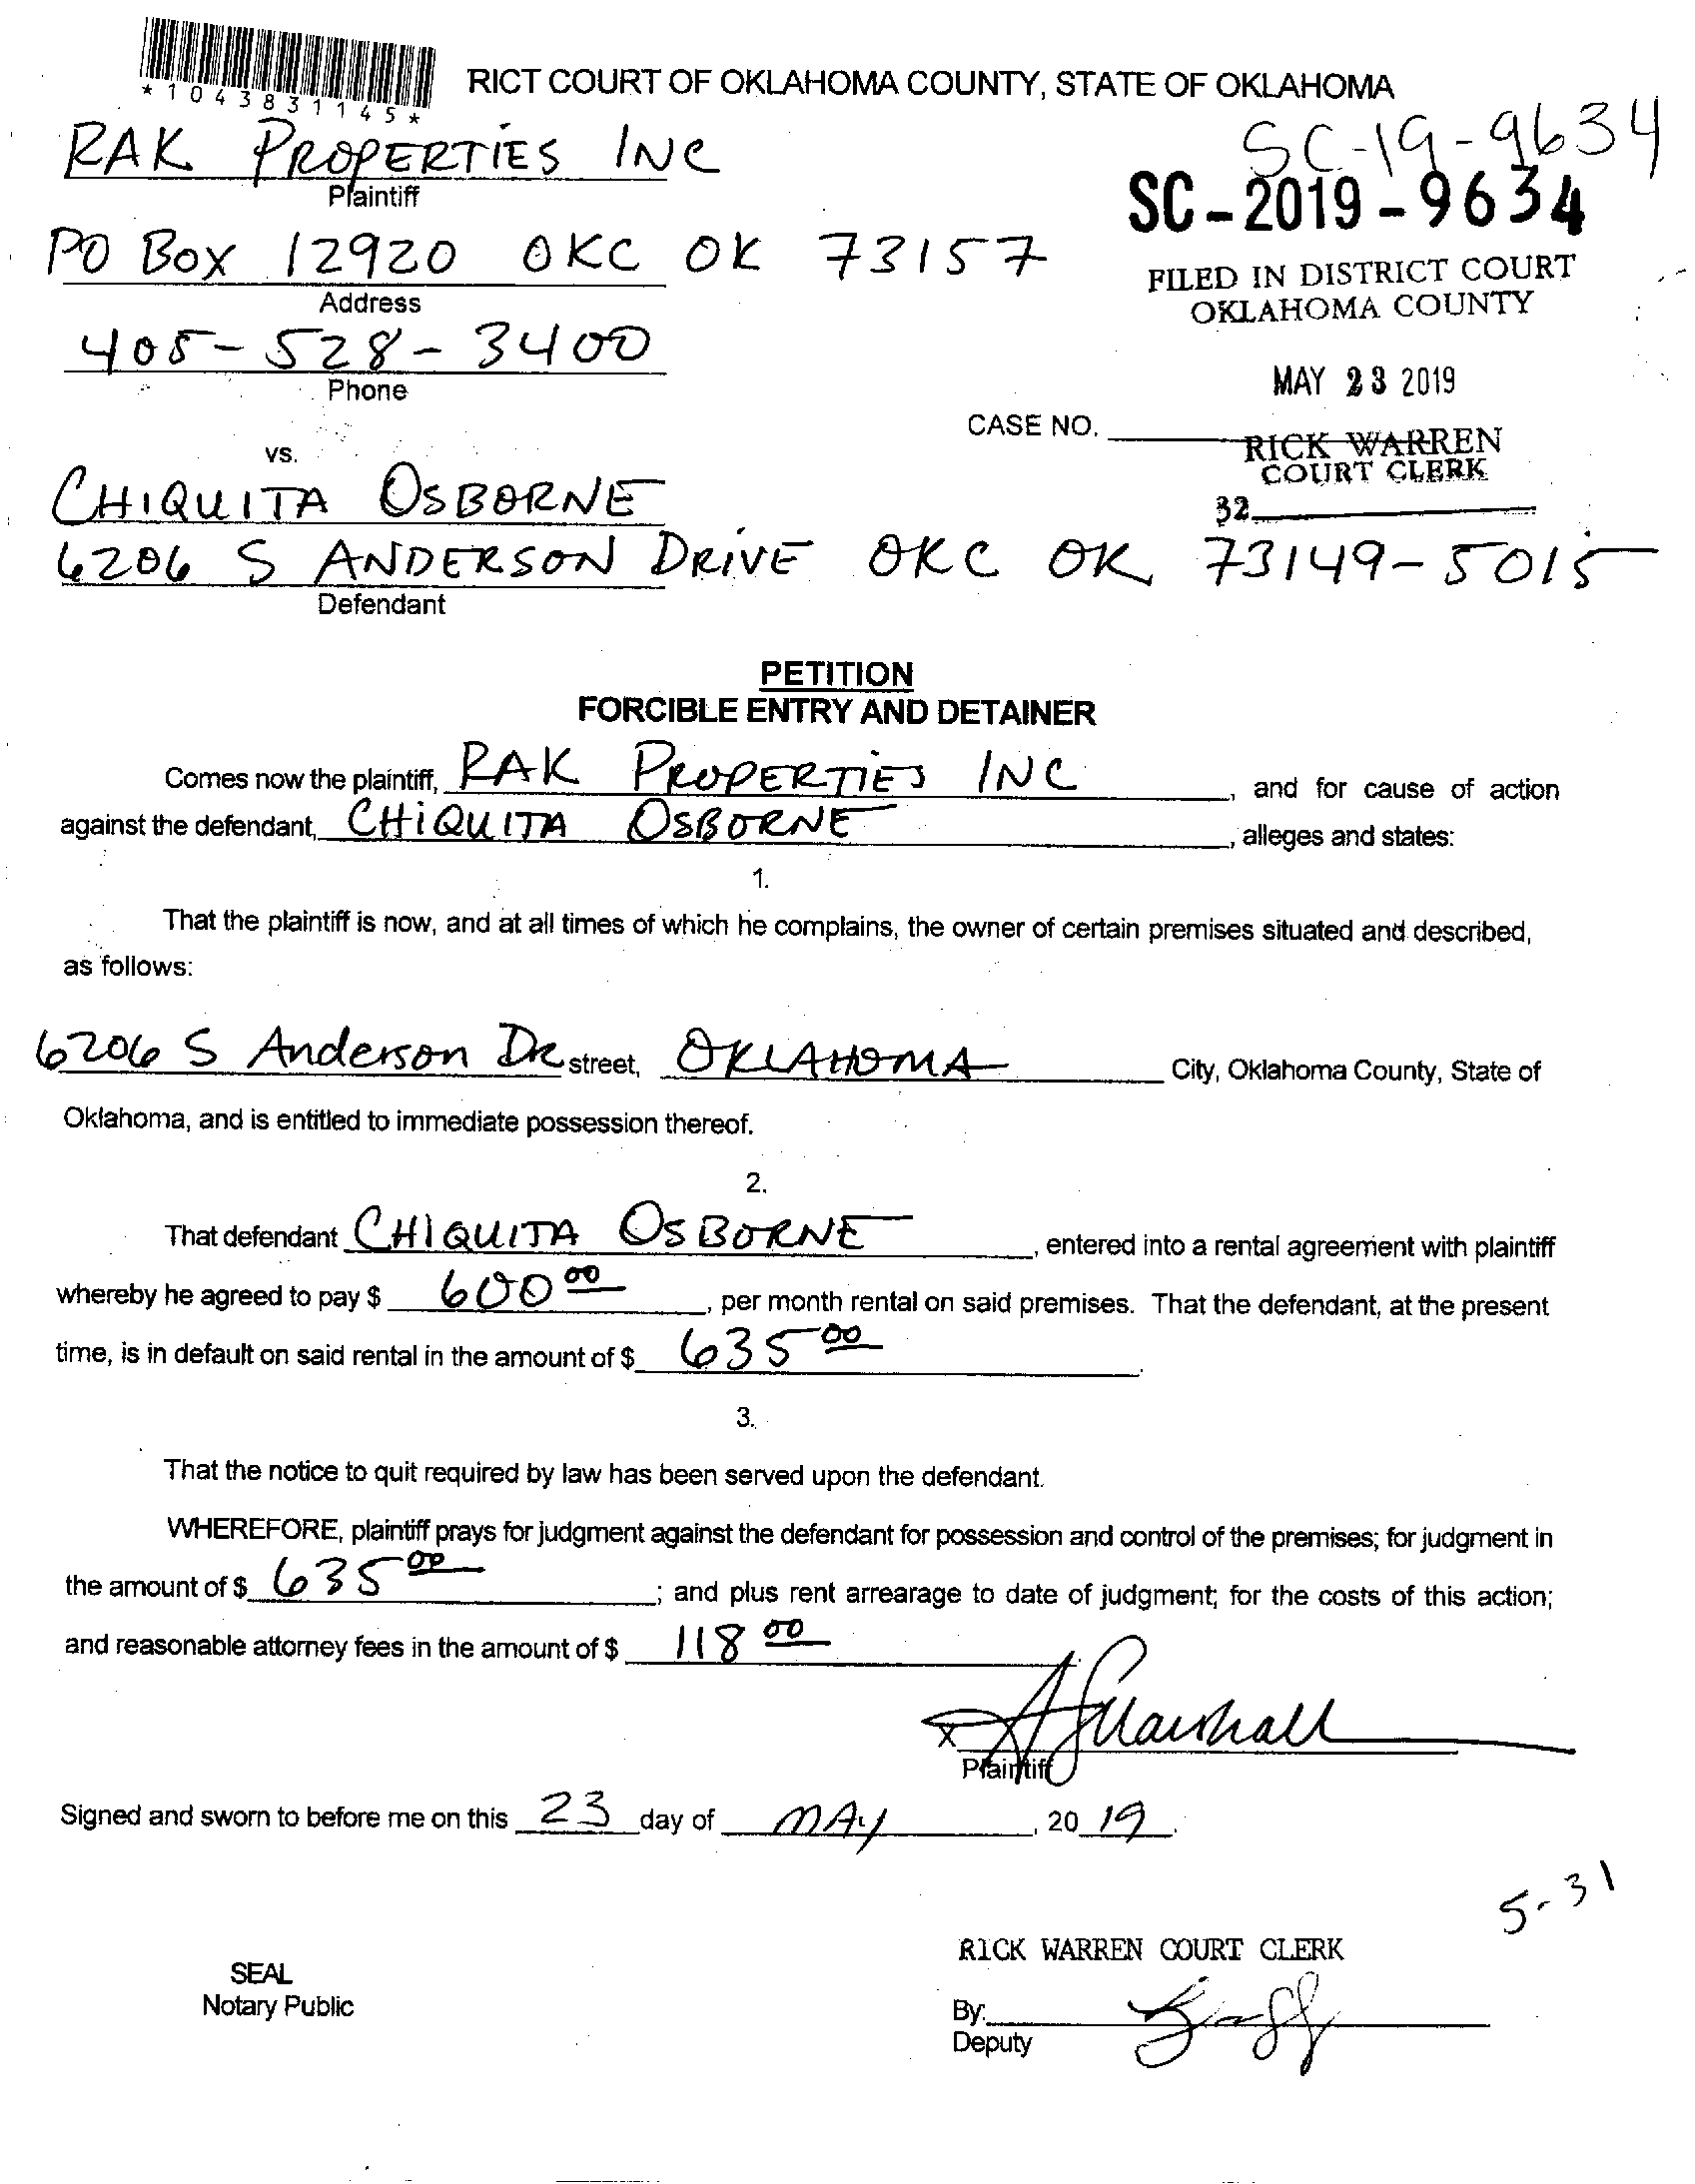 *1043831145*
RICT COURT OF OKLAHOMA COUNTY, STATE OF OKLAHOMA
SC-19-9634
RAK PROPERTIES INC
Plaintiff
SC-2019-9634
PO BOX 12920 OKC OK 73157
FILED IN DISTRICT COURT
Address
OKLAHOMA COUNTY
405-528-3400
Phone
MAY 23 2019
CASE NO.
RICK WARREN
vs.
COURT CLERK
CHIQUITA OSBORNE
32
6206 S ANDERSON DRIVE OKC OK 73149-5015
Defendant
PETITION
FORCIBLE ENTRY AND DETAINER
Comes now the plaintiff, RAK PROPERTIES INC, and for cause of action
against the defendant, CHIQUITA OSBORNE, alleges and states:
1.
That the plaintiff is now, and at all times of which he complains, the owner of certain premises situated and described,
as follows:
6206 S Anderson DR street, OKLAHOMA City, Oklahoma County, State of
Oklahoma, and is entitled to immediate possession thereof.
2.
That defendant CHIQUITA OSBORNE, entered into a rental agreement with plaintiff
whereby he agreed to pay $ 600 00, per month rental on said premises. That the defendant, at the present
time, is in default on said rental in the amount of $ 635 00.
3.
That the notice to quit required by law has been served upon the defendant.
WHEREFORE, plaintiff prays for judgment against the defendant for possession and control of the premises; for judgment in
the amount of $ 635 00; and plus rent arrearage to date of judgment; for the costs of this action;
and reasonable attorney fees in the amount of $ 118 00.
X Marshall
Plaintiff
Signed and sworn to before me on this 23 day of MAY, 20 19.
5-31
RICK WARREN COURT CLERK
SEAL
Notary Public
By:
Deputy